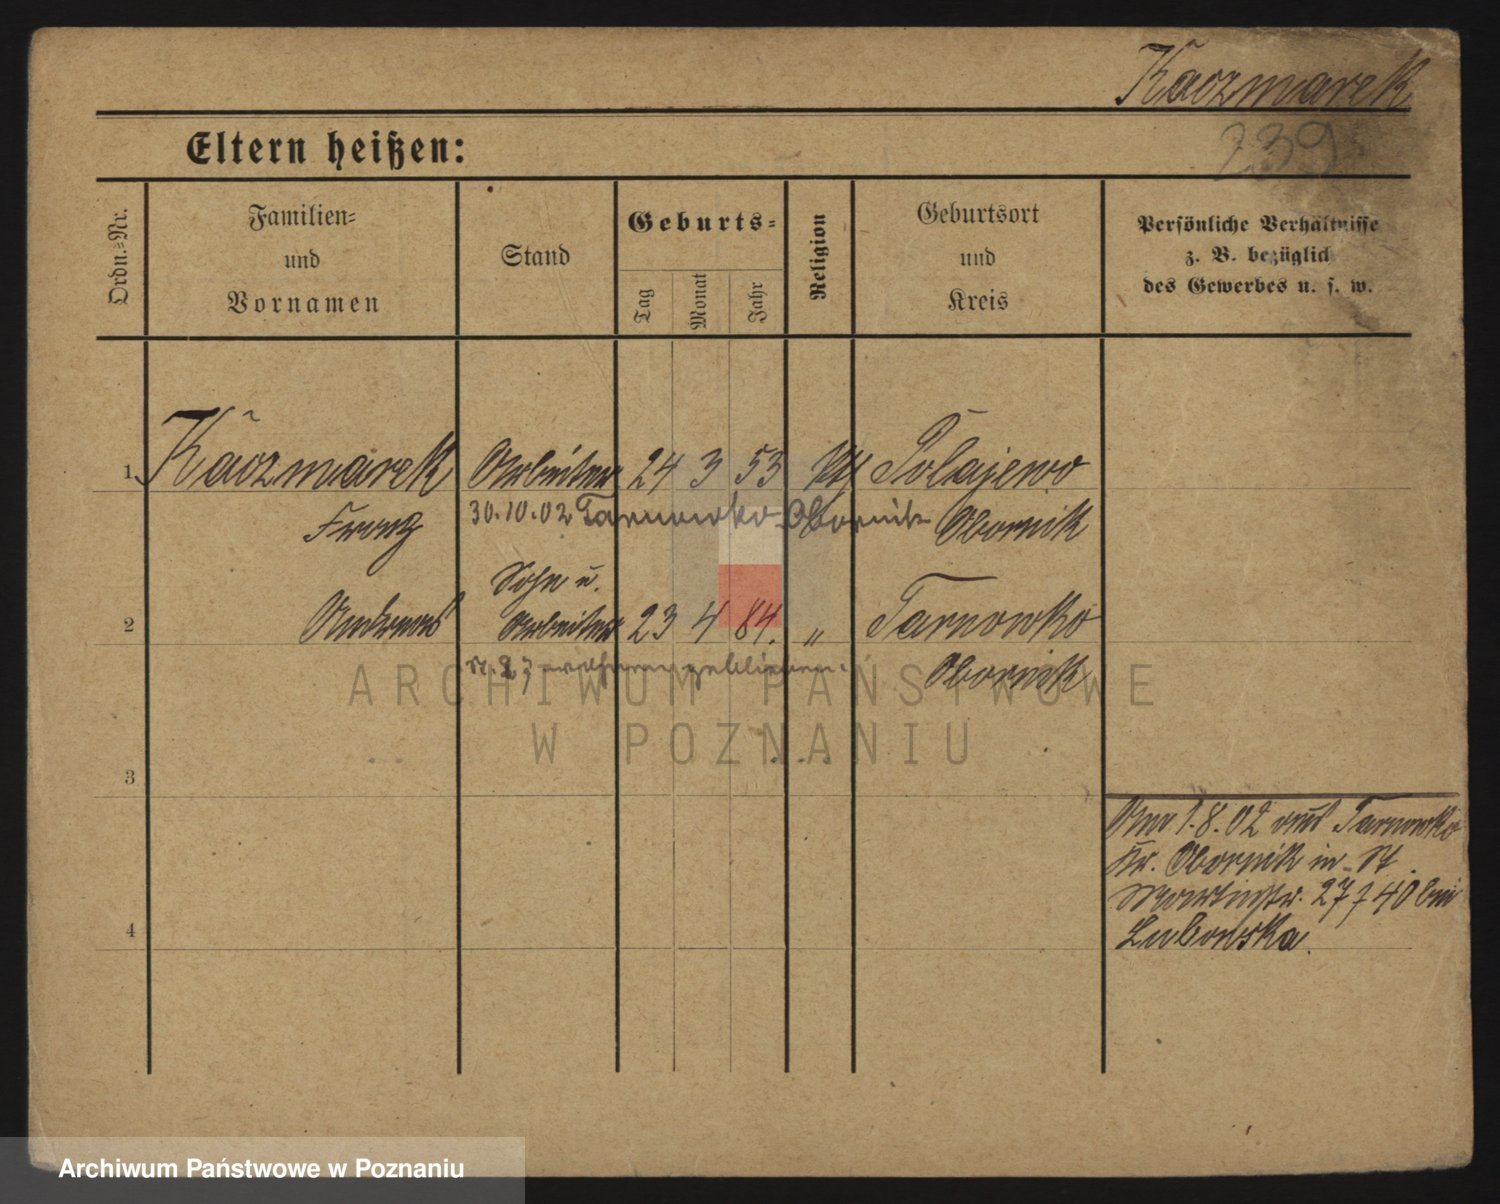 Kaczmarek
239
Eltern heißen:
Ordn.=Nr.
Familien=
und
Vornamen
Stand
Geburts=
Tag
Monat
Jahr
Religion
Geburtsort
und
Kreis
Persönliche Verhältnisse
z. B. bezüglich
des Gewerbes u. s. w.
1 Kaczmarek Arbeiter 24 3 53 kth Polajewo
Franz 30.10.02 Tarnowko Obornik Obornik
Sohn u.
2 Andreas Arbeiter 23 4 84. " Tarnowko
Obornik
ARCHIWUM PAŃSTWOWE
W POZNANIU
3
Am 1.8.02 aus Tarnowko
Kr. Obornik in St
Martinstr. 27 740 bei
4 Lubonska.
Archiwum Państwowe w Poznaniu